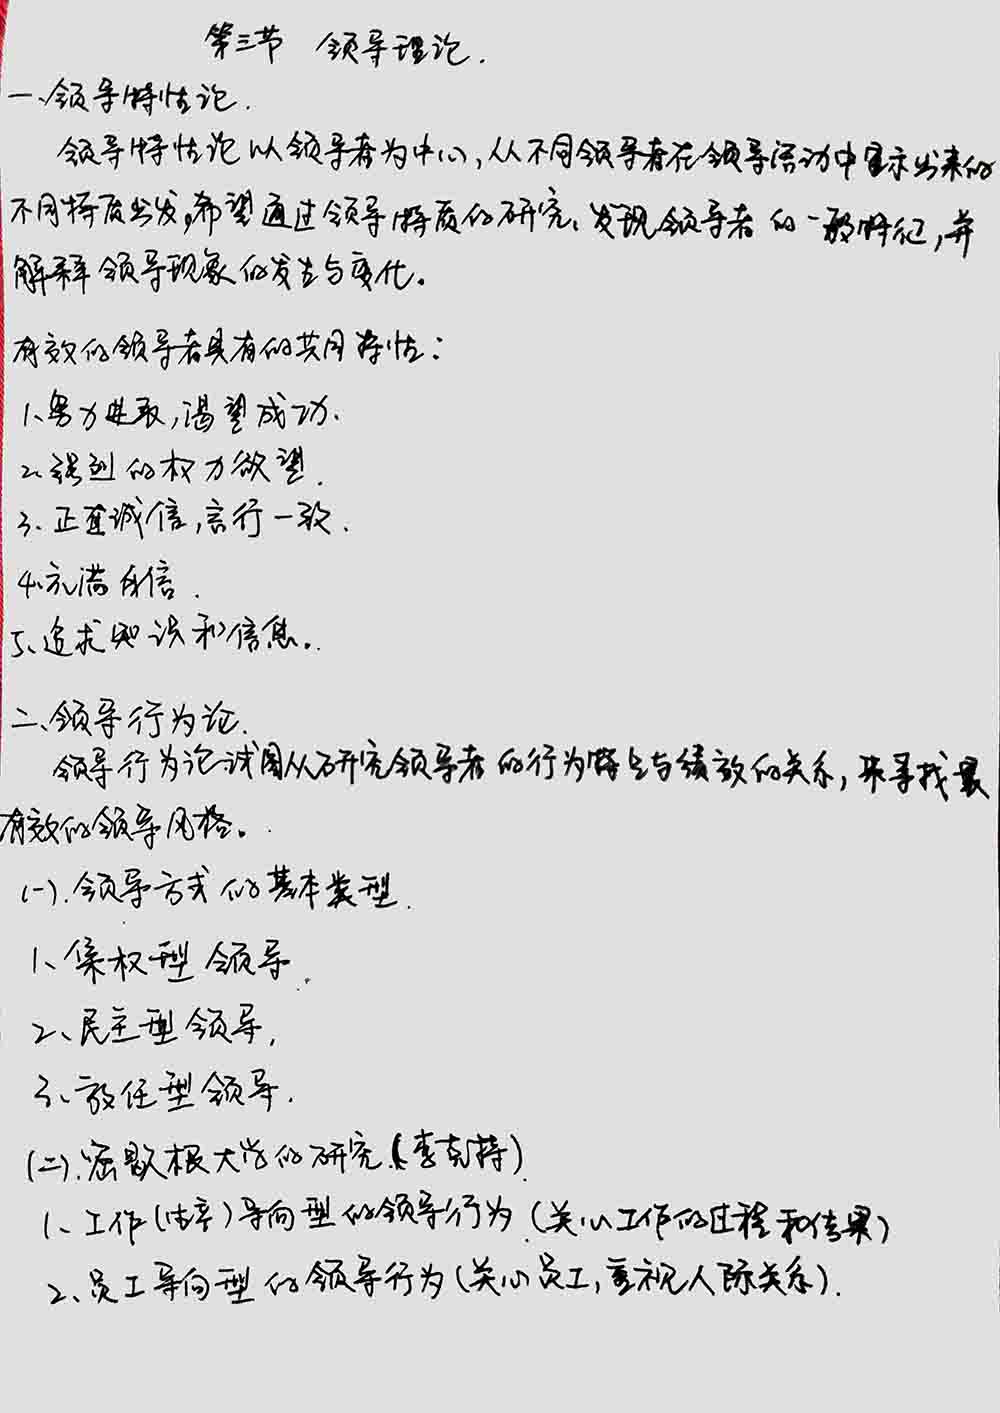 第三节 领导理论.
一、领导特性论.
领导特性论以领导者为中心,从不同领导者在领导活动中显示出来的
不同特质出发,希望通过领导特质的研究,发现领导者的一般特征,并
解释领导现象的发生与变化。
有效的领导者具有的共同特性:
1、努力进取,渴望成功.
2、强烈的权力欲望.
3、正直诚信,言行一致.
4、充满自信.
5、追求知识和信息.
二、领导行为论.
领导行为论试图从研究领导者的行为特点与绩效的关系,来寻找最
有效的领导风格。
(一).领导方式的基本类型.
1、集权型领导.
2、民主型领导,
3、放任型领导.
(二).密歇根大学的研究(李克特)
1、工作(生产)导向型的领导行为.(关心工作的过程和结果)
2、员工导向型的领导行为(关心员工,重视人际关系).